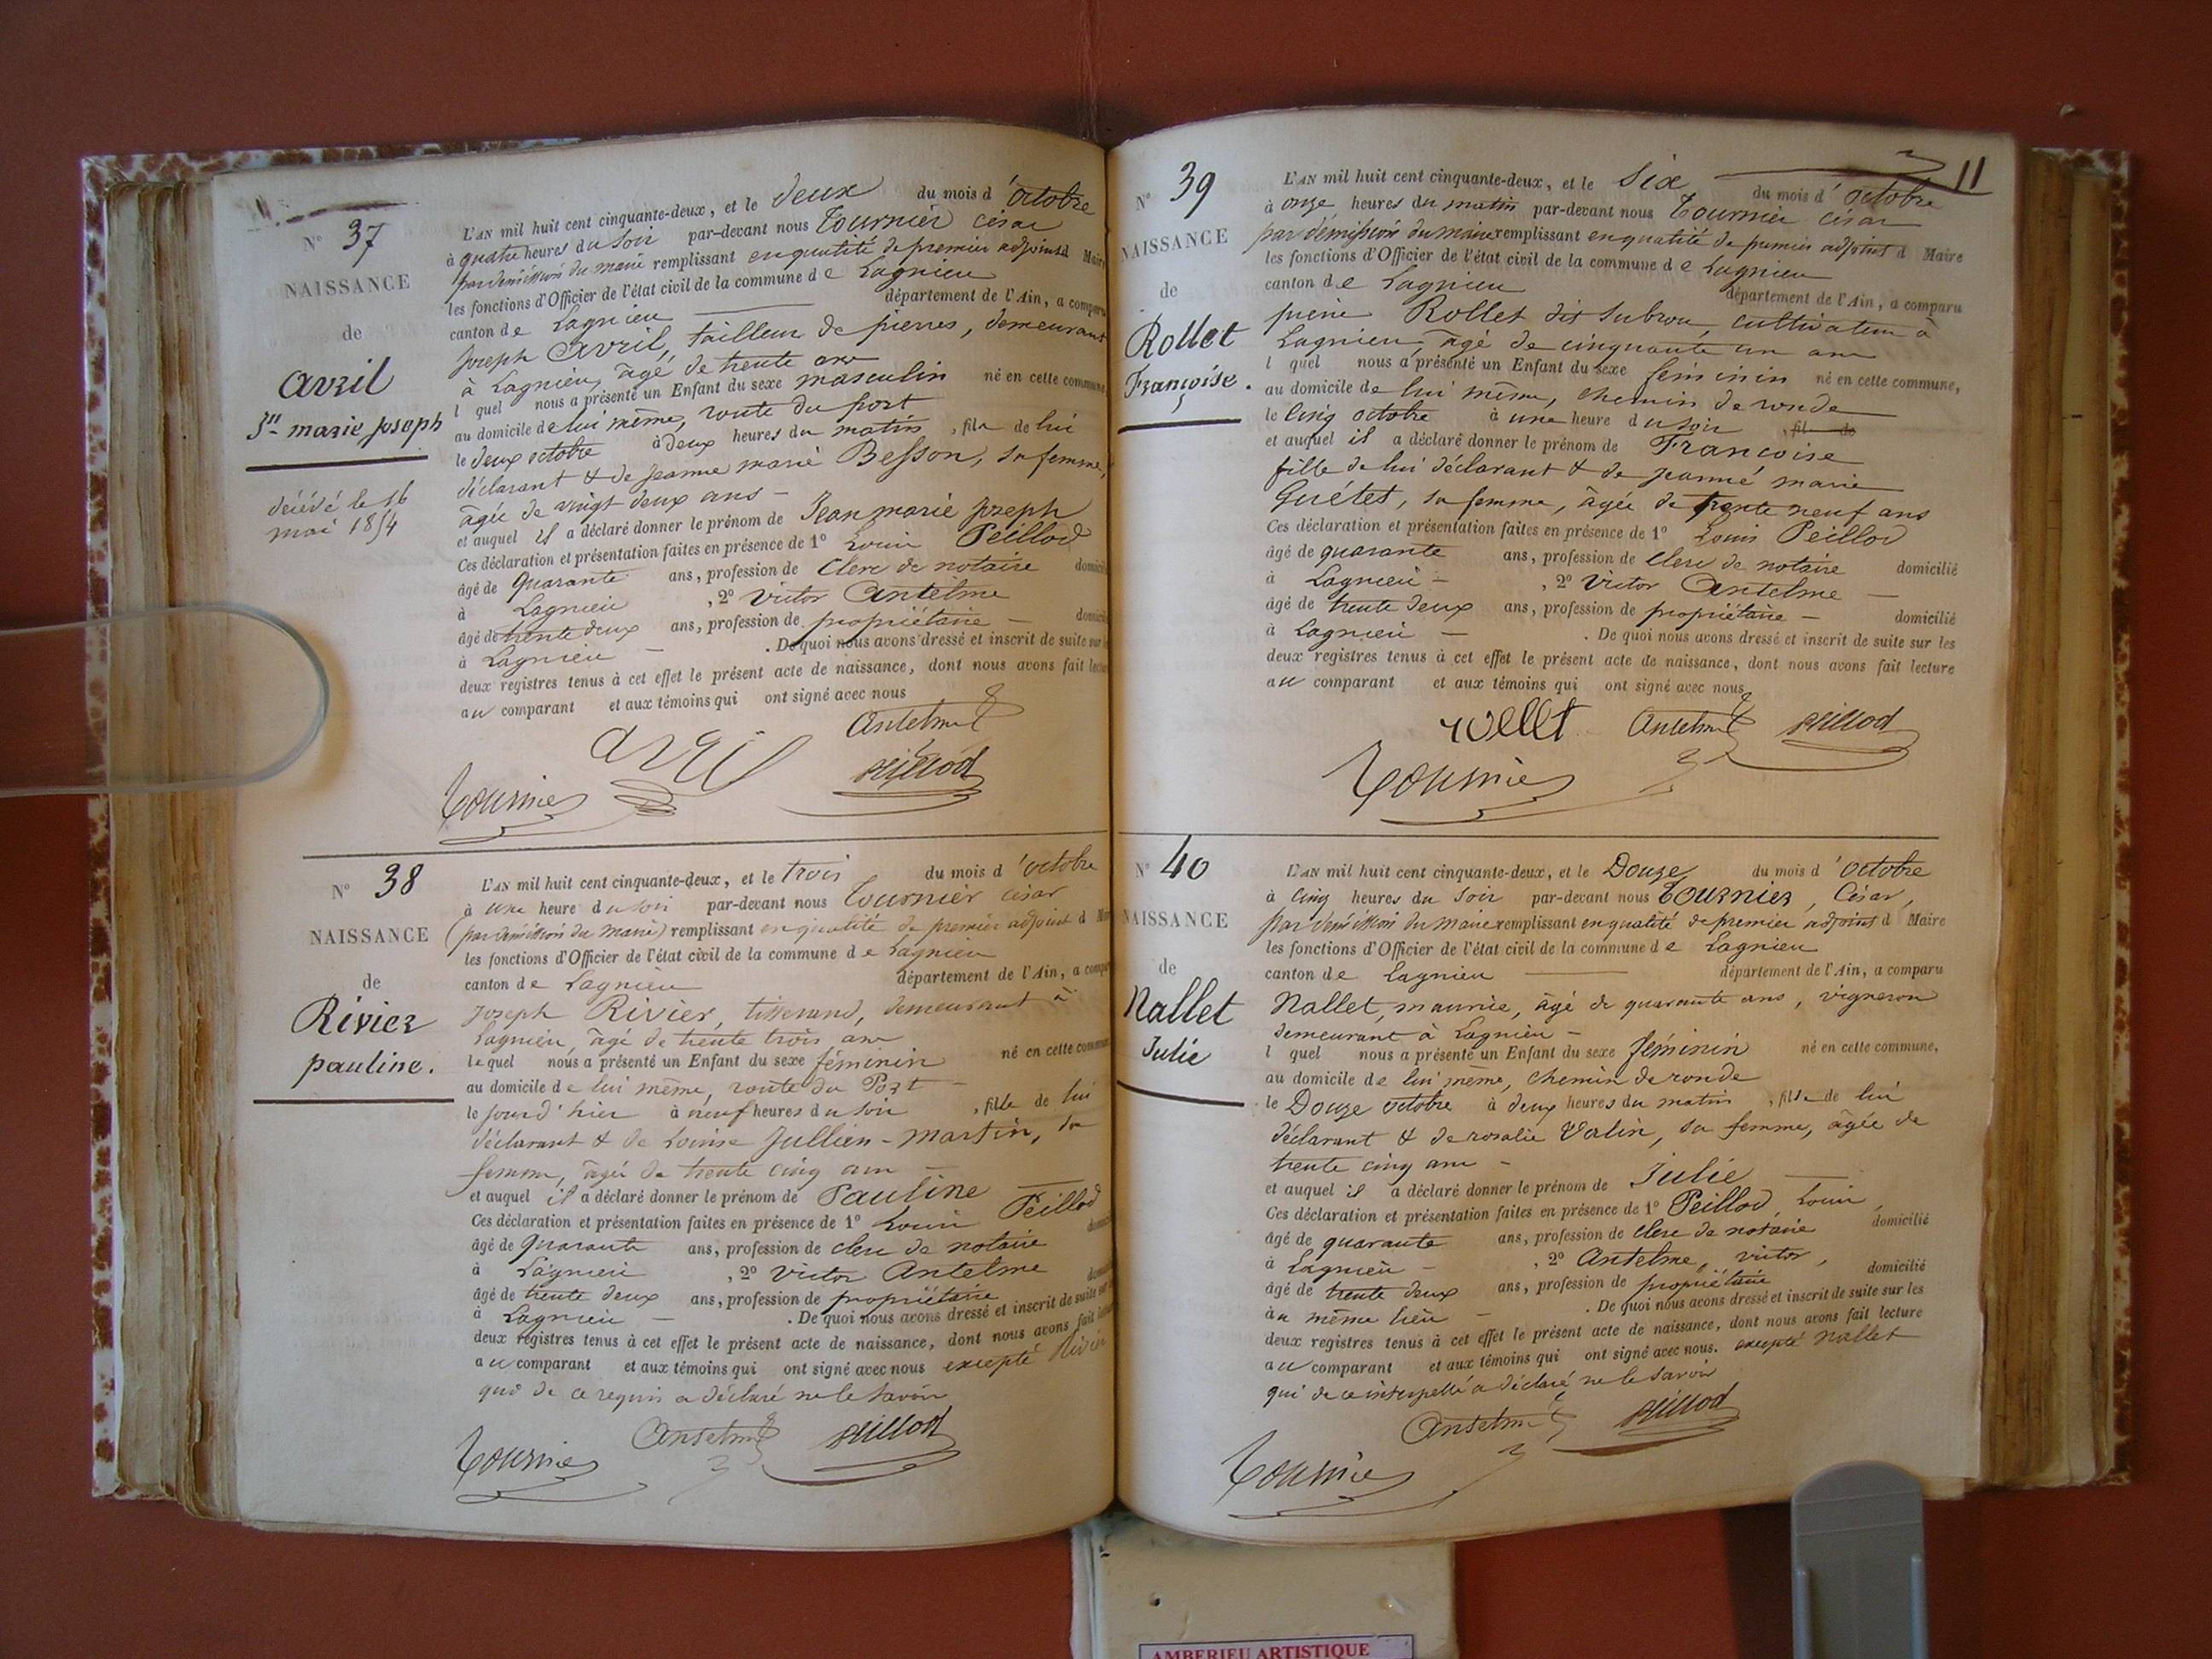 N° 37
NAISSANCE
de
Avril
Jn marie joseph
décédé le 16
mai 1854
L'AN mil huit cent cinquante-deux, et le deux du mois d'octobre
à quatre heures du soir par-devant nous Tournier césar
par démission du maire remplissant en qualité de premier adjoint d Maire
les fonctions d'Officier de l'état civil de la commune de Lagnieu
canton de Lagnieu département de l'Ain, a comparu
joseph Avril, tailleur de pierres, demeurant
à Lagnieu, âgé de trente ans
l quel nous a présenté un Enfant du sexe masculin né en cette commune,
au domicile de lui même, route du port
le deux octobre à deux heures du matin, fils de lui
déclarant & de jeanne marie Besson, sa femme,
âgée de vingt deux ans -
et auquel il a déclaré donner le prénom de Jean marie joseph
Ces déclaration et présentation faites en présence de 1° Louis Peillod
âgé de Quarante ans, profession de Clerc de notaire
à Lagnieu, 2° Victor Antelme
âgé de trente deux ans, profession de propriétaire -
à Lagnieu - . De quoi nous avons dressé et inscrit de suite sur
deux registres tenus à cet effet le présent acte de naissance, dont nous avons fait
au comparant et aux témoins qui ont signé avec nous
Antelme
Avril
Peillod
Tournier
N° 38
NAISSANCE
de
Rivier
pauline.
L'AN mil huit cent cinquante-deux, et le trois du mois d'octobre
à une heure du soir par-devant nous Tournier césar
(par démission du maire) remplissant en qualité de premier adjoint d
les fonctions d'Officier de l'état civil de la commune de Lagnieu
canton de Lagnieu département de l'Ain, a
joseph Rivier, tisserand, demeurant à
Lagnieu, âgé de trente trois ans
lequel nous a présenté un Enfant du sexe féminin né en cette
au domicile de lui même, route du Port -
le jour d'hier à neuf heures du soir, fille de lui
déclarant & de Louise Jullien-Martin, sa
femme, âgée de trente cinq ans -
et auquel il a déclaré donner le prénom de Pauline
Ces déclaration et présentation faites en présence de 1° Louis Peillod
âgé de quarante ans, profession de clerc de notaire
à Lagnieu, 2° Victor Antelme
âgé de trente deux ans, profession de propriétaire
à Lagnieu - . De quoi nous avons dressé et inscrit de suite
deux registres tenus à cet effet le présent acte de naissance, dont nous avons fait
au comparant et aux témoins qui ont signé avec nous excepté Rivier
qui de ce requis a déclaré ne le savoir
Antelme Peillod
Tournier
11
N° 39
NAISSANCE
de
Rollet
Françoise.
L'AN mil huit cent cinquante-deux, et le Six du mois d'octobre
à onze heures du matin par-devant nous Tournier césar
par démission du maire remplissant en qualité de premier adjoint d Maire
les fonctions d'Officier de l'état civil de la commune de Lagnieu
canton de Lagnieu département de l'Ain, a comparu
pierre Rollet dit Subrou, cultivateur à
Lagnieu, âgé de cinquante un ans
l quel nous a présenté un Enfant du sexe féminin né en cette commune,
au domicile de lui même, chemin de ronde
le Cinq octobre à une heure du soir, fil de
et auquel il a déclaré donner le prénom de Françoise
fille de lui déclarant & de jeanne marie
Guétet, sa femme, âgée de trente neuf ans
Ces déclaration et présentation faites en présence de 1° Louis Peillod
âgé de quarante ans, profession de Clerc de notaire domicilié
à Lagnieu -, 2° Victor Antelme -
âgé de trente deux ans, profession de propriétaire - domicilié
à Lagnieu - . De quoi nous avons dressé et inscrit de suite sur les
deux registres tenus à cet effet le présent acte de naissance, dont nous avons fait lecture
au comparant et aux témoins qui ont signé avec nous
rollet Antelme Peillod
Tournier
N° 40
NAISSANCE
de
Nallet
Julie
L'AN mil huit cent cinquante-deux, et le Douze du mois d'octobre
à cinq heures du soir par-devant nous Tournier, César,
par démission du Maire remplissant en qualité de premier adjoint d Maire
les fonctions d'Officier de l'état civil de la commune de Lagnieu
canton de Lagnieu département de l'Ain, a comparu
Nallet, maurice, âgé de quarante ans, vigneron
demeurant à Lagnieu -
l quel nous a présenté un Enfant du sexe féminin né en cette commune,
au domicile de lui même, chemin de ronde
le Douze octobre à deux heures du matin, fille de lui
déclarant & de rosalie Valin, sa femme, âgée de
trente cinq ans -
et auquel il a déclaré donner le prénom de Julie
Ces déclaration et présentation faites en présence de 1° Peillod, Louis,
âgé de quarante ans, profession de clerc de notaire domicilié
à Lagnieu -, 2° Antelme, victor,
âgé de trente deux ans, profession de propriétaire domicilié
au même lieu - . De quoi nous avons dressé et inscrit de suite sur les
deux registres tenus à cet effet le présent acte de naissance, dont nous avons fait lecture
au comparant et aux témoins qui ont signé avec nous. excepté Nallet
qui de ce interpellé a déclaré ne le savoir
Antelme Peillod
Tournier
AMBERIEU ARTISTIQUE